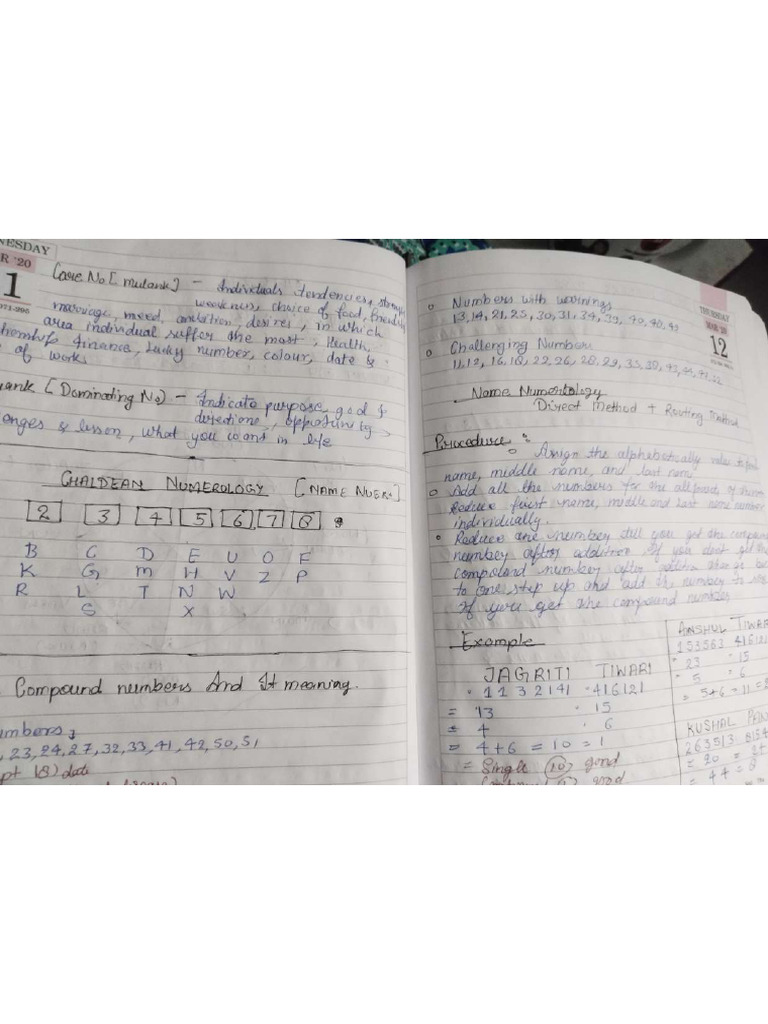 NESDAY
R '20
1
071-295
Core No [mulank] - Individuals tendencies, strength
weakness, choice of food, friendship
marriage, mood, ambition, desires, in which
area individual suffer the most, Health,
finance, Lucky number, colour, date &
of work
[Dominating No] - Indicate purpose, god &
directions, oppotunity
enges & lesson, what you want in life
CHALDEAN NUMEROLOGY [NAME
2 3 4 5 6 7 8
B C D E U O F
K G M H V Z P
R L T N W
S X
Compound numbers And It meaning.
umbers,
, 23, 24, 27, 32, 33, 41, 42, 50, 51
pt 18) date
THURSDAY
MAR '20
12
Numbers with warnings
13, 14, 21, 25, 30, 31, 34,
Challenging Numbers
11, 12, 16, 18, 22, 26, 28, 29, 35, 38, 43, 44,
Name Numerology
Direct Method + Method
Procedure :
Assign the alphabetically value to
name, middle name, and last name
Add all the numbers for the all parts of
Reduce first name, middle and last name number
individually.
Reduce the number till you get the compound
number after addition. If you don't get the
compound number after addition
to one step up and add the number to
if you get the compound number
Example
JAGRITI TIWARI
1 1 3 2 1 4 1 4 1 6 1 2 1
= 13 15
= 4 6
= 4+6 = 10 = 1
= Single (10) good
good
ANSHUL TIWAR
1 5 3 5 6 3 4 1 6 1 2 1
23 15
5 6
= 5+6 = 11 = 2
KUSHAL
2 6 3 5 1 3 8 1 5 4
= 20 =
= 44 = 8